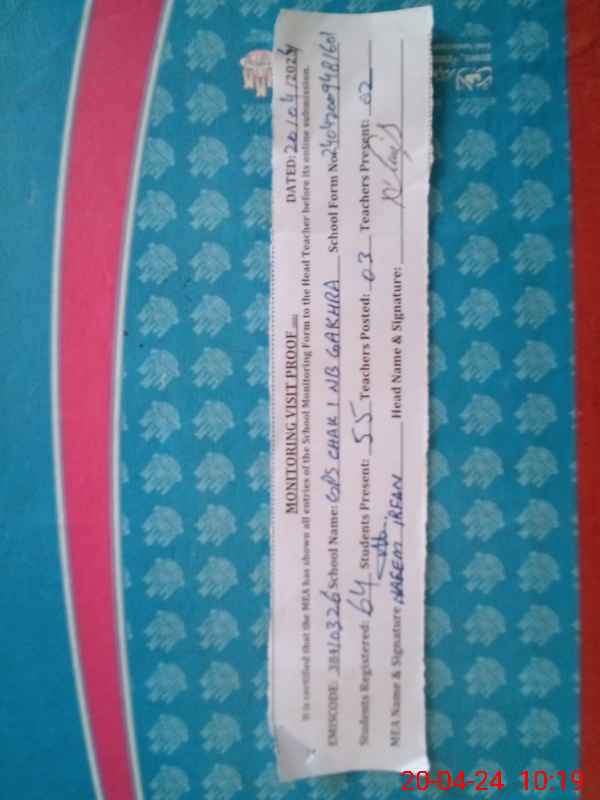 MONITORING VISIT PROOF DATED: 20/04/2024
It is certified that the MEA has shown all entries of the School Monitoring Form to the Head Teacher before its online submission.
EMISCODE: 38410326 School Name: GPS CHAK 1 NB GAKHRA School Form No:
Students Registered: 64 Students Present: 55 Teachers Posted: 03 Teachers Present: 02
MEA Name & Signature IRFAN Head Name & Signature:
20-04-24 10:19